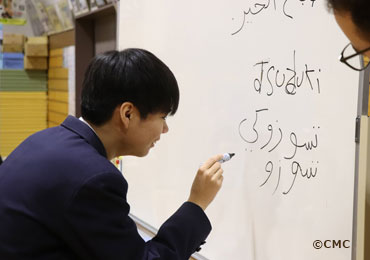 الخير
tsuduki
تسوزوكي
تسوزو
©CMC